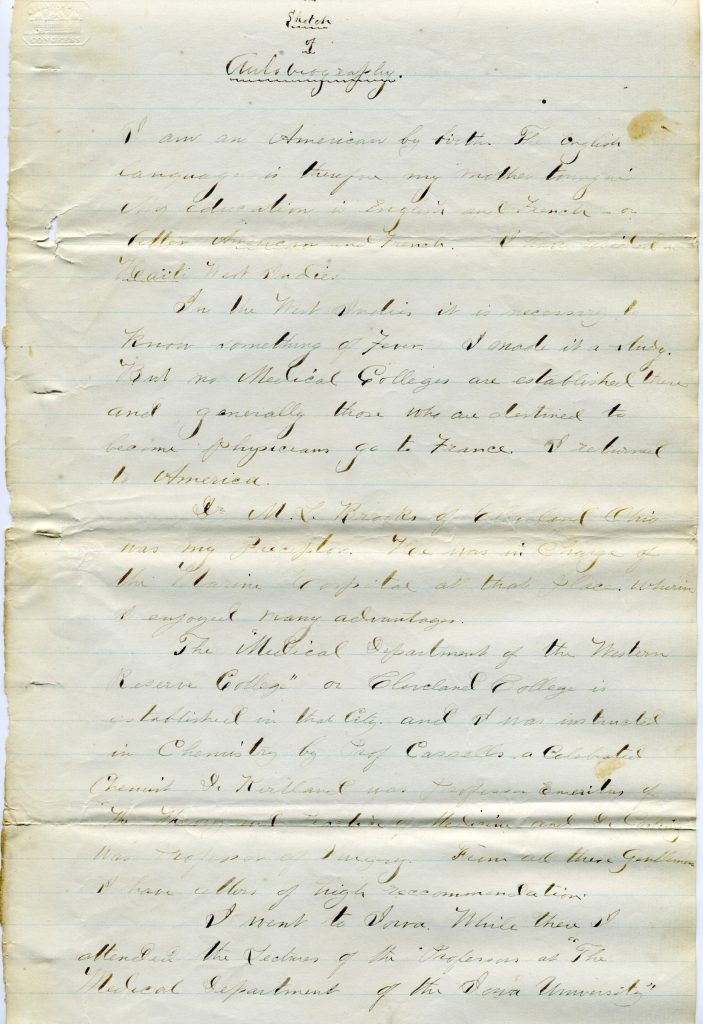 CONGRESS
Sketch
of
Autobiography.
I am an American by birth. The English
language is therefore my mother tongue
My Education is English and French – or
better American and French. I have resided in
Haiti West Indies
In the West Indies it is necessary to
know something of Fever. I made it a study.
But no Medical Colleges are established there
and generally those who are destined to
become physicians go to France. I returned
to America.
Dr M. L. Brooks of Cleveland Ohio
was my Preceptor. He was in Charge of
the Marine Hospital at that place wherin
I enjoyed many advantages.
The "Medical Department of the Western
Reserve College" or Cleveland College is
established in that City. and I was instructed
in Chemistry by Prof Cassells a Celebrated
Chemist Dr Kirtland was Professor Emeritus of
The Theory and Practice of Medicine and Dr
was Professor of Surgery. From all these Gentlemen
I have letters of high reccommendation.
I went to Iowa. While there I
attended the Lectures of the Professors at "The
Medical Department of the Iowa University"